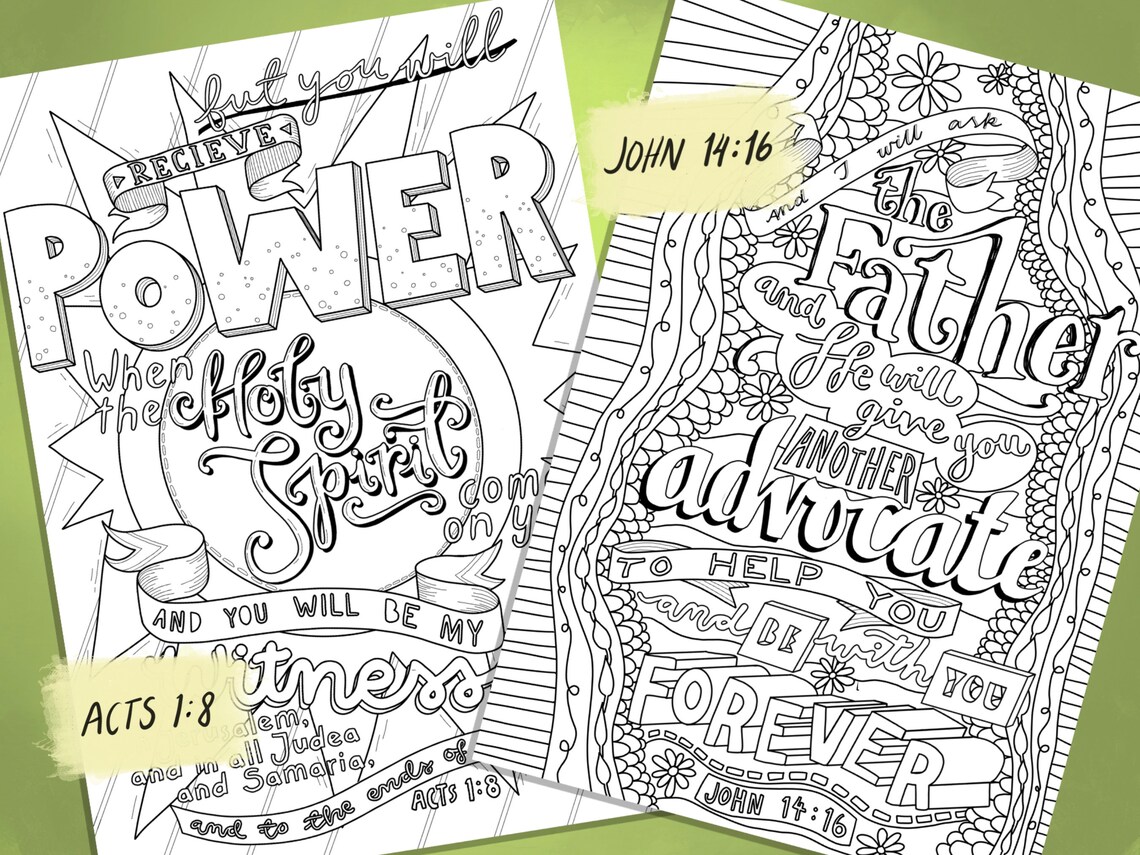 but you will
RECIEVE
POWER
When
the Holy
Spirit
com
on y
AND YOU WILL BE MY
witness
rusalem,
and in all Judea
and Samaria,
and to the ends of
ACTS 1:8
ACTS 1:8
JOHN 14:16
And I will ask
the
Father
and He will
give you
ANOTHER
advocate
TO HELP YOU
and BE with YOU
FOREVER
JOHN 14:16